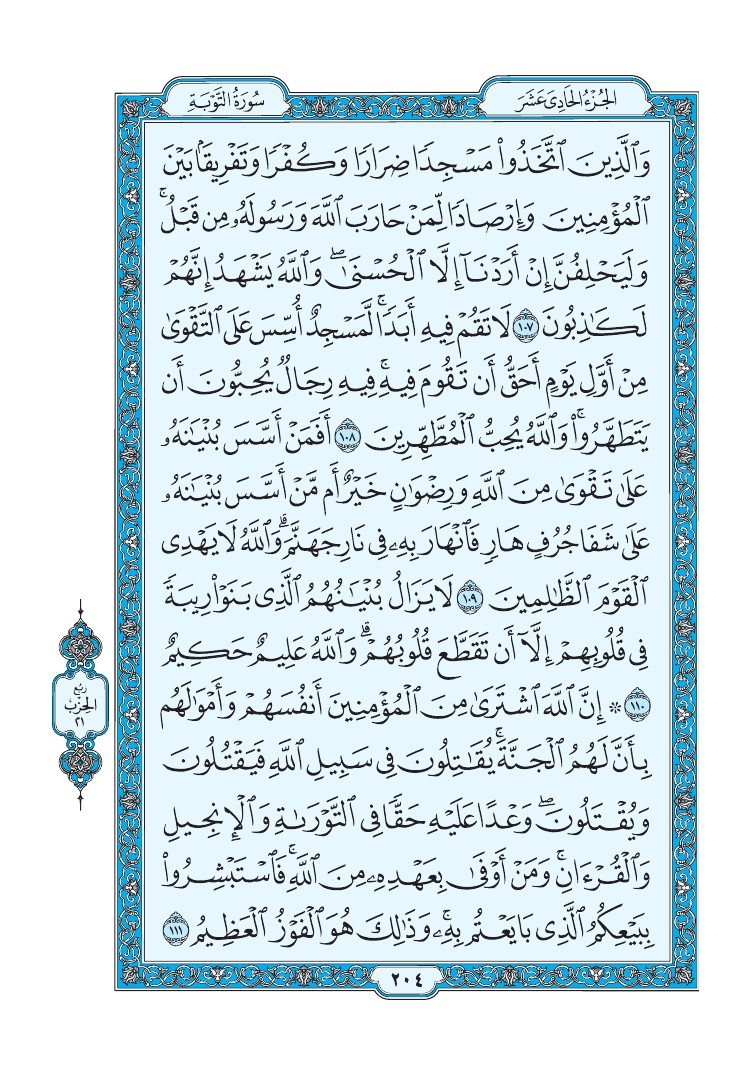 الجُزْءُ الحَادِىَ عَشَرَ
سُورَةُ التَّوْبَةِ
وَٱلَّذِينَ ٱتَّخَذُواْ مَسْجِدٗا ضِرَارٗا وَكُفْرٗا وَتَفْرِيقَۢا بَيْنَ
ٱلْمُؤْمِنِينَ وَإِرْصَادٗا لِّمَنْ حَارَبَ ٱللَّهَ وَرَسُولَهُۥ مِن قَبْلُۚ
وَلَيَحْلِفُنَّ إِنْ أَرَدْنَآ إِلَّا ٱلْحُسْنَىٰۖ وَٱللَّهُ يَشْهَدُ إِنَّهُمْ
لَكَٰذِبُونَ ١٠٧ لَا تَقُمْ فِيهِ أَبَدٗاۚ لَّمَسْجِدٌ أُسِّسَ عَلَى ٱلتَّقْوَىٰ
مِنْ أَوَّلِ يَوْمٍ أَحَقُّ أَن تَقُومَ فِيهِۚ فِيهِ رِجَالٞ يُحِبُّونَ أَن
يَتَطَهَّرُواْۚ وَٱللَّهُ يُحِبُّ ٱلْمُطَّهِّرِينَ ١٠٨ أَفَمَنْ أَسَّسَ بُنْيَٰنَهُۥ
عَلَىٰ تَقْوَىٰ مِنَ ٱللَّهِ وَرِضْوَٰنٍ خَيْرٌ أَم مَّنْ أَسَّسَ بُنْيَٰنَهُۥ
عَلَىٰ شَفَا جُرُفٍ هَارٖ فَٱنْهَارَ بِهِۦ فِى نَارِ جَهَنَّمَۗ وَٱللَّهُ لَا يَهْدِى
ٱلْقَوْمَ ٱلظَّٰلِمِينَ ١٠٩ لَا يَزَالُ بُنْيَٰنُهُمُ ٱلَّذِى بَنَوْاْ رِيبَةٗ
فِى قُلُوبِهِمْ إِلَّآ أَن تَقَطَّعَ قُلُوبُهُمْۗ وَٱللَّهُ عَلِيمٌ حَكِيمٌ
١١٠ * إِنَّ ٱللَّهَ ٱشْتَرَىٰ مِنَ ٱلْمُؤْمِنِينَ أَنفُسَهُمْ وَأَمْوَٰلَهُم
بِأَنَّ لَهُمُ ٱلْجَنَّةَۚ يُقَٰتِلُونَ فِى سَبِيلِ ٱللَّهِ فَيَقْتُلُونَ
وَيُقْتَلُونَۖ وَعْدًا عَلَيْهِ حَقّٗا فِى ٱلتَّوْرَىٰةِ وَٱلْإِنجِيلِ
وَٱلْقُرْءَانِۚ وَمَنْ أَوْفَىٰ بِعَهْدِهِۦ مِنَ ٱللَّهِۚ فَٱسْتَبْشِرُواْ
بِبَيْعِكُمُ ٱلَّذِى بَايَعْتُم بِهِۦۚ وَذَٰلِكَ هُوَ ٱلْفَوْزُ ٱلْعَظِيمُ ١١١
رُبُع
الحِزْب
٢١
٢٠٤